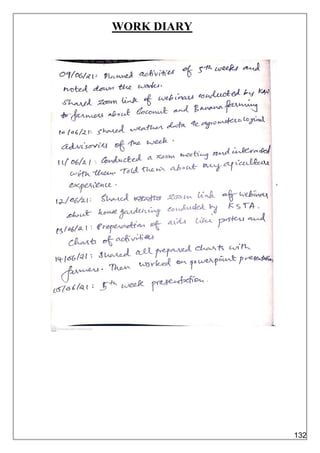 WORK DIARY
09/06/21: Planned activities of 5th weeks and
noted down the works.
Shared zoom link of webinars conducted by KAU
to farmers about Coconut and Banana farming
10/06/21: Shared weather data & agrometerological
advisories of the week.
11/06/21: Conducted a zoom meeting and interacted
with them. Told them about my apiculture
experience.
12/06/21: Shared zoom link of webinar
about home gardening conducted by KSTA.
13/06/21: Preperation of aids like posters and
charts of activities
14/06/21: Shared all prepared charts with
farmers. Then worked on powerpoint presentation
15/06/21: 5th week presentation.
132